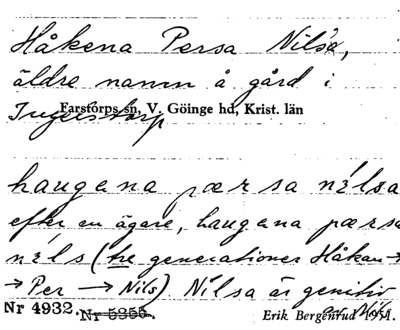 Håkena Persa Nilsa,
äldre namn å gård i
Farstorps sn, V. Göinge hd, Krist. län
Ingelstorp
haugena pærsa nilsa
efter en ägare, haugena pærsa
nils (tre generationer Håkan →
→ Per → Nils) Nilsa är genitiv
av Nils.
Nr 4932. Nr 5355.
Erik Bergenfud 1951.